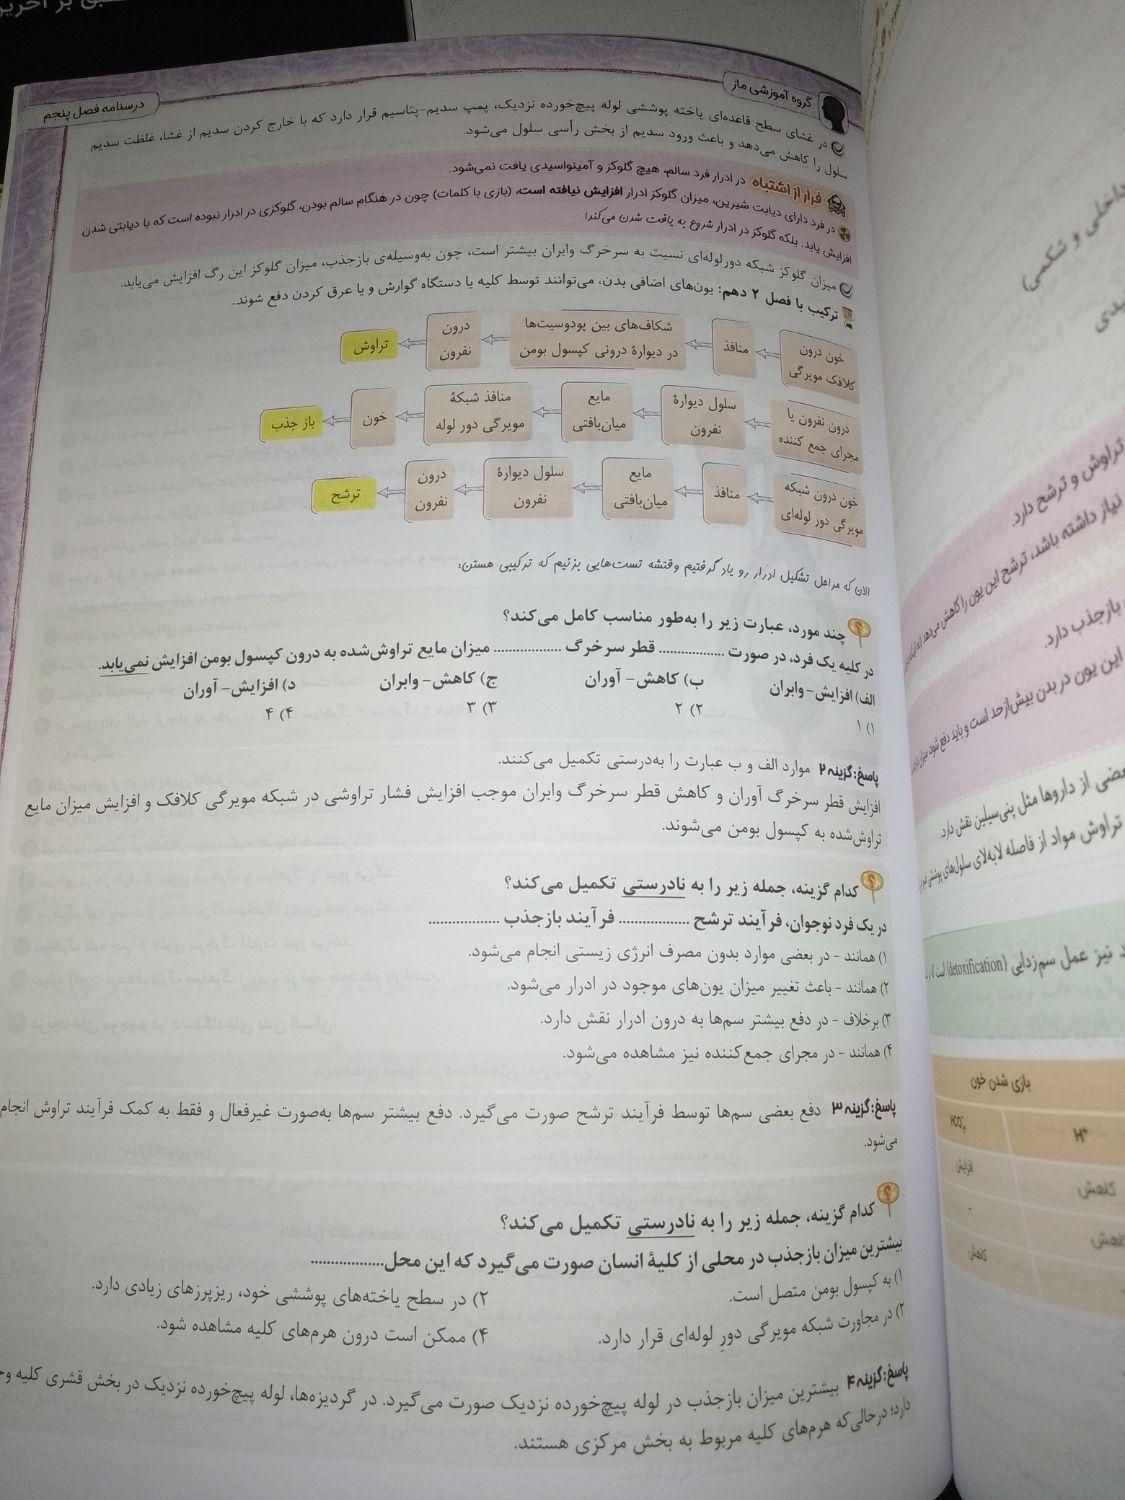 گروه آموزشی ماز
درسنامه فصل پنجم
در غشای سطح قاعده‌ای یاخته پوششی لوله پیچ‌خورده نزدیک، پمپ سدیم-پتاسیم قرار دارد که با خارج کردن سدیم از غشا، غلظت سدیم
سلول را کاهش می‌دهد و باعث ورود سدیم از بخش رأسی سلول می‌شود.
فرار از اشتباه در ادرار فرد سالم، هیچ گلوکز و آمینواسیدی یافت نمی‌شود.
در فرد دارای دیابت شیرین، میزان گلوکز ادرار افزایش نیافته است، (بازی با کلمات) چون در هنگام سالم بودن، گلوکزی در ادرار نبوده است که با دیابتی شدن
افزایش یابد. بلکه گلوکز در ادرار شروع به یافت شدن می‌کند!
میزان گلوکز شبکه دورلوله‌ای نسبت به سرخرگ وابران بیشتر است، چون به‌وسیله‌ی بازجذب، میزان گلوکز این رگ افزایش می‌یابد.
ترکیب با فصل ۲ دهم: یون‌های اضافی بدن، می‌توانند توسط کلیه یا دستگاه گوارش و یا عرق کردن دفع شوند.
خون درون کلافک مویرگی
منافذ
شکاف‌های بین پودوسیت‌ها در دیوارهٔ درونی کپسول بومن
درون نفرون
تراوش
درون نفرون یا مجرای جمع کننده
سلول دیوارهٔ نفرون
مایع میان‌بافتی
منافذ شبکهٔ مویرگی دور لوله
خون
باز جذب
خون درون شبکه مویرگی دور لوله‌ای
منافذ
مایع میان‌بافتی
سلول دیوارهٔ نفرون
درون نفرون
ترشح
الان که مراحل تشکیل ادرار رو یاد گرفتیم وقتشه تست‌هایی بزنیم که ترکیبی هستن:
چند مورد، عبارت زیر را به‌طور مناسب کامل می‌کند؟
در کلیه یک فرد، در صورت ................. قطر سرخرگ ................. میزان مایع تراوش‌شده به درون کپسول بومن افزایش نمی‌یابد.
الف) افزایش- وابران ب) کاهش- آوران ج) کاهش- وابران د) افزایش- آوران
۱) ۱ ۲) ۲ ۳) ۳ ۴) ۴
پاسخ: گزینه ۲ موارد الف و ب عبارت را به‌درستی تکمیل می‌کنند.
افزایش قطر سرخرگ آوران و کاهش قطر سرخرگ وابران موجب افزایش فشار تراوشی در شبکه مویرگی کلافک و افزایش میزان مایع
تراوش‌شده به کپسول بومن می‌شوند.
کدام گزینه، جمله زیر را به نادرستی تکمیل می‌کند؟
در یک فرد نوجوان، فرآیند ترشح ................. فرآیند بازجذب .................
۱) همانند - در بعضی موارد بدون مصرف انرژی زیستی انجام می‌شود.
۲) همانند - باعث تغییر میزان یون‌های موجود در ادرار می‌شود.
۳) برخلاف - در دفع بیشتر سم‌ها به درون ادرار نقش دارد.
۴) همانند - در مجرای جمع‌کننده نیز مشاهده می‌شود.
پاسخ: گزینه ۳ دفع بعضی سم‌ها توسط فرآیند ترشح صورت می‌گیرد. دفع بیشتر سم‌ها به‌صورت غیرفعال و فقط به کمک فرآیند تراوش انجام
می‌شود.
کدام گزینه، جمله زیر را به نادرستی تکمیل می‌کند؟
بیشترین میزان بازجذب در محلی از کلیهٔ انسان صورت می‌گیرد که این محل.................
۱) به کپسول بومن متصل است. ۲) در سطح یاخته‌های پوششی خود، ریزپرزهای زیادی دارد.
۲) در مجاورت شبکه مویرگی دورِ لوله‌ای قرار دارد. ۴) ممکن است درون هرم‌های کلیه مشاهده شود.
پاسخ: گزینه ۴ بیشترین میزان بازجذب در لوله پیچ‌خورده نزدیک صورت می‌گیرد. در گردیزه‌ها، لوله پیچ‌خورده نزدیک در بخش قشری کلیه
دارد؛ درحالی‌که هرم‌های کلیه مربوط به بخش مرکزی هستند.
تراوش و ترشح دارد.
نیاز داشته باشد، ترشح این یون را کاهش می‌دهد
بازجذب دارد.
این یون در بدن بیش‌ازحد است و باید دفع شود
بعضی از داروها مثل پنی‌سیلین نقش دارد.
تراوش مواد از فاصله لابه‌لای سلول‌های پوششی
نیز عمل سم‌زدایی (detoxification) است که
بازی شدن خون
H⁺ HCO₃⁻
کاهش افزایش
کاهش کاهش